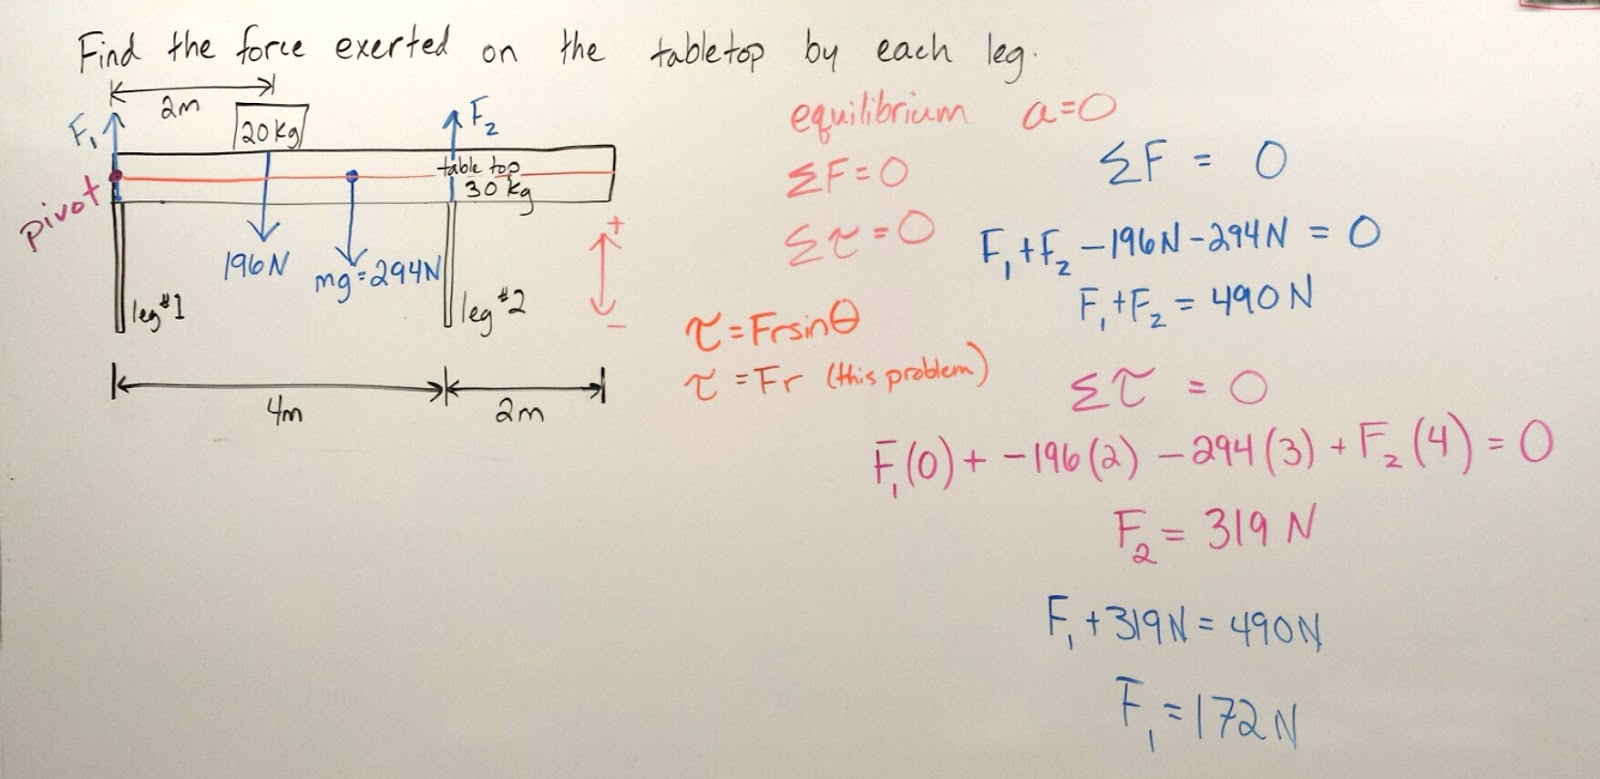 Find the force exerted on the tabletop by each leg.
2m
F₁
20 kg
F₂
table top
30 kg
pivot
196N
mg = 294N
leg #1
leg #2
+
−
4m
2m
equilibrium a=0
ΣF=0
Στ=0
τ=Frsinθ
τ=Fr (this problem)
ΣF = 0
F₁+F₂ −196N−294N = 0
F₁+F₂ = 490N
Στ = 0
F₁(0)+ −196(2) −294(3) + F₂(4) = 0
F₂ = 319 N
F₁+319N = 490N
F₁ = 172N